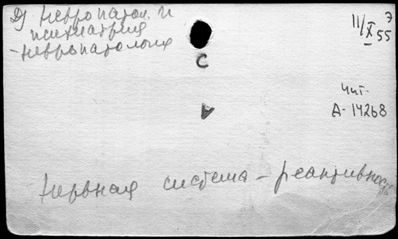 Д) Невропатол. и
психиатрия
- невропатология
11/X 55
7
С
Чит.
А-14268
Нервная система - реактивность